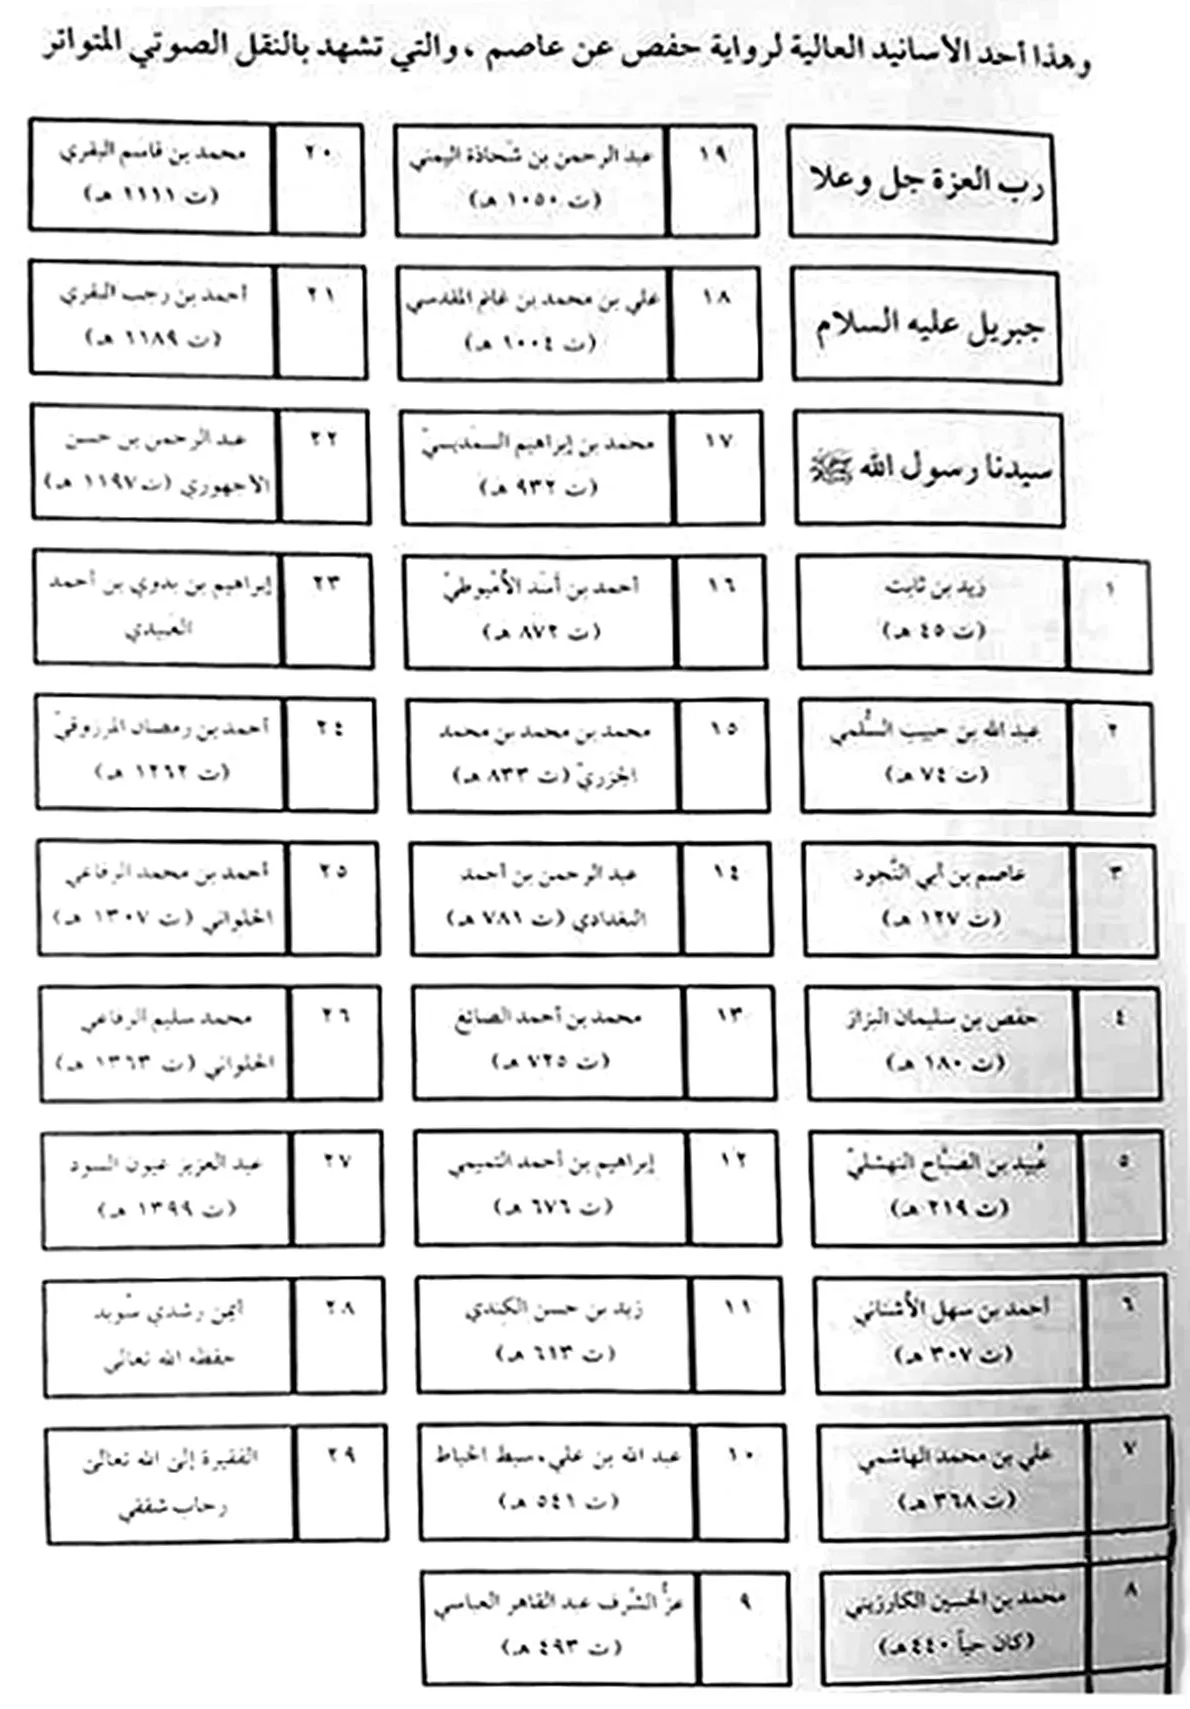 وهذا أحد الأسانيد العالية لرواية حفص عن عاصم ، والتي تشهد بالنقل الصوتي المتواتر
رب العزة جل وعلا
جبريل عليه السلام
سيدنا رسول الله ﷺ
١
زيد بن ثابت
(ت ٤٥ هـ)
٢
عبد الله بن حبيب السُّلمي
(ت ٧٤ هـ)
٣
عاصم بن أبي النَّجود
(ت ١٢٧ هـ)
٤
حفص بن سليمان البزاز
(ت ١٨٠ هـ)
٥
عُبيد بن الصبَّاح النهشليّ
(ت ٢١٩ هـ)
٦
أحمد بن سهل الأُشناني
(ت ٣٠٧ هـ)
٧
علي بن محمد الهاشمي
(ت ٣٦٨ هـ)
٨
محمد بن الحسين الكارزيني
(كان حياً ٤٤٠ هـ)
٩
عزُّ الشَّرف عبد القاهر العباسي
(ت ٤٩٣ هـ)
١٠
عبد الله بن علي، سبط الخياط
(ت ٥٤١ هـ)
١١
زيد بن حسن الكندي
(ت ٦١٣ هـ)
١٢
إبراهيم بن أحمد التميمي
(ت ٦٧٦ هـ)
١٣
محمد بن أحمد الصائغ
(ت ٧٢٥ هـ)
١٤
عبد الرحمن بن أحمد
البغدادي (ت ٧٨١ هـ)
١٥
محمد بن محمد بن محمد
الجزريّ (ت ٨٣٣ هـ)
١٦
أحمد بن أسَد الأُمْيوطيّ
(ت ٨٧٢ هـ)
١٧
محمد بن إبراهيم السمديسيّ
(ت ٩٣٢ هـ)
١٨
علي بن محمد بن غانم المقدسي
(ت ١٠٠٤ هـ)
١٩
عبد الرحمن بن شحاذة اليمني
(ت ١٠٥٠ هـ)
٢٠
محمد بن قاسم البقري
(ت ١١١١ هـ)
٢١
أحمد بن رجب البقري
(ت ١١٨٩ هـ)
٢٢
عبد الرحمن بن حسن
الأجهوري (ت ١١٩٧ هـ)
٢٣
إبراهيم بن بدوي بن أحمد
العبيدي
٢٤
أحمد بن رمضان المرزوقيّ
(ت ١٢٦٢ هـ)
٢٥
أحمد بن محمد الرفاعي
الحلواني (ت ١٣٠٧ هـ)
٢٦
محمد سليم الرفاعي
الحلواني (ت ١٣٦٣ هـ)
٢٧
عبد العزيز عيون السود
(ت ١٣٩٩ هـ)
٢٨
أيمن رشدي سُويد
حفظه الله تعالى
٢٩
الفقيرة إلى الله تعالى
رحاب شققي